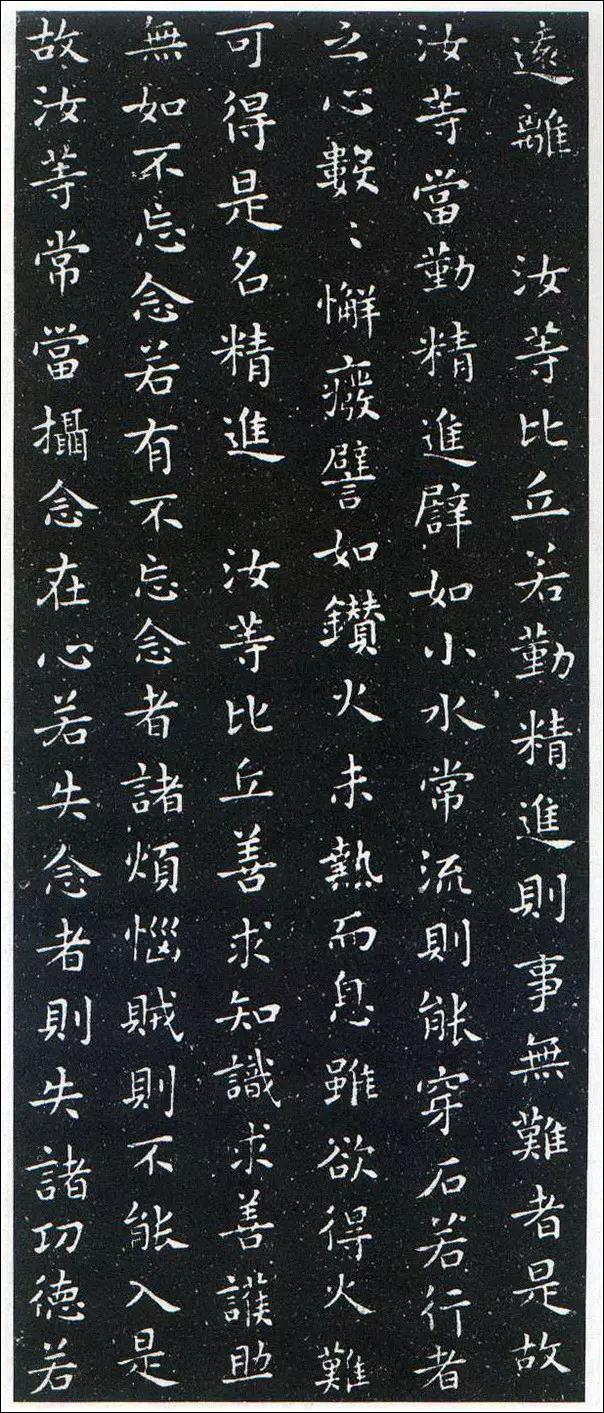 遠離　汝等比丘若勤精進則事無難者是故
汝等當勤精進辟如小水常流則能穿石若行者
之心數〻懈癈譬如鑚火未熱而息雖欲得火難
可得是名精進　汝等比丘善求知識求善護助
無如不忘念若有不忘念者諸煩惱賊則不能入是
故汝等常當攝念在心若失念者則失諸功德若